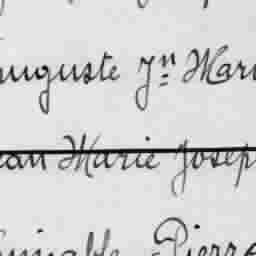 uguste Jn Mari
ean Marie Josep
aimable Pierre